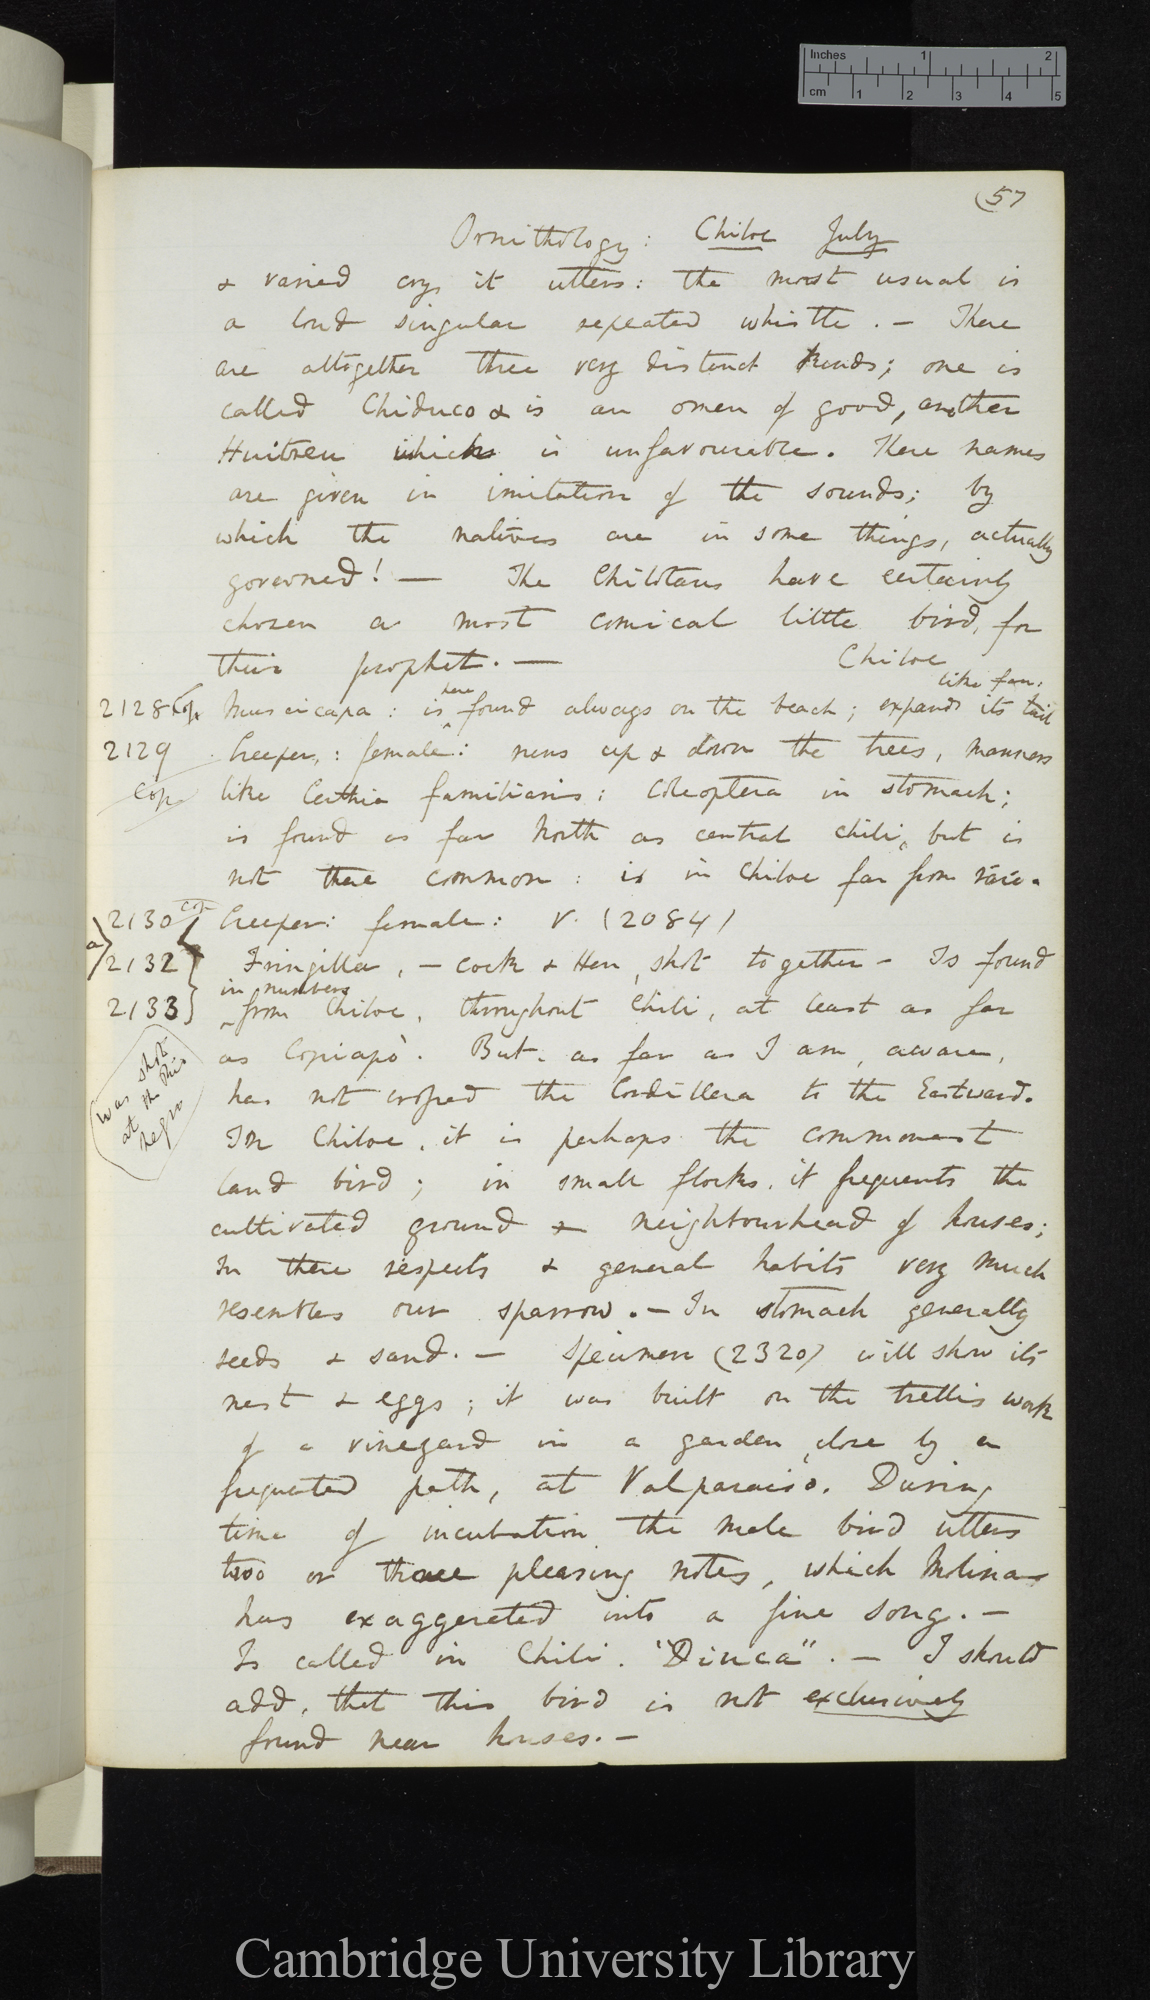 Inches 1 2
cm 1 2 3 4 5
(57
Ornithology: Chiloe July
& varied crys it utters: the most usual is
a loud singular repeated whistle. — There
are altogether three very distinct kinds; one is
called Chiduco & is an omen of good, another
Huitreu which is unfavourable. These names
are given in imitation of the sounds; by
which the natives are in some things, actually
governed! — The Chilotans have certainly
chosen a most comical little bird, for
their prophet. — Chiloe
like fan:
here
2128 Cop Muscicapa: is found always on the beach; expands its tail
2129 Creeper,: female: runs up & down the trees, manners
Cop like Certhia familiaris: Coleoptera in stomach;
is found as far North as central Chili, but is
not there common: is in Chiloe far from rare.
2130 Cop Creeper: female: V. (2084)
a 2132 Fringilla, — cock & Hen, shot together — Is found
in numbers
2133 from Chiloe, throughout Chili, at least as far
as Copiapò. But, as far as I am, aware,
was shot
at the Rio
Negro
has not crossed the Cordillera to the Eastward.
In Chiloe, it is perhaps the commonest
land bird; in small flocks, it frequents the
cultivated ground & neighbourhead of houses;
in these respects & general habits very much
resembles our sparrow. — In stomach generally
seeds & sand. — Specimen (2320) will show its
nest & eggs; it was built on the trellis work
of a vineyard in a garden, close by a
frequented path, at Valparaiso. During
time of incubation the male bird utters
two or three pleasing notes, which Molina
has exaggerated into a fine song. —
Is called in Chili. "Diuca". — I should
add, that this bird is not exclusively
found near houses. —
Cambridge University Library